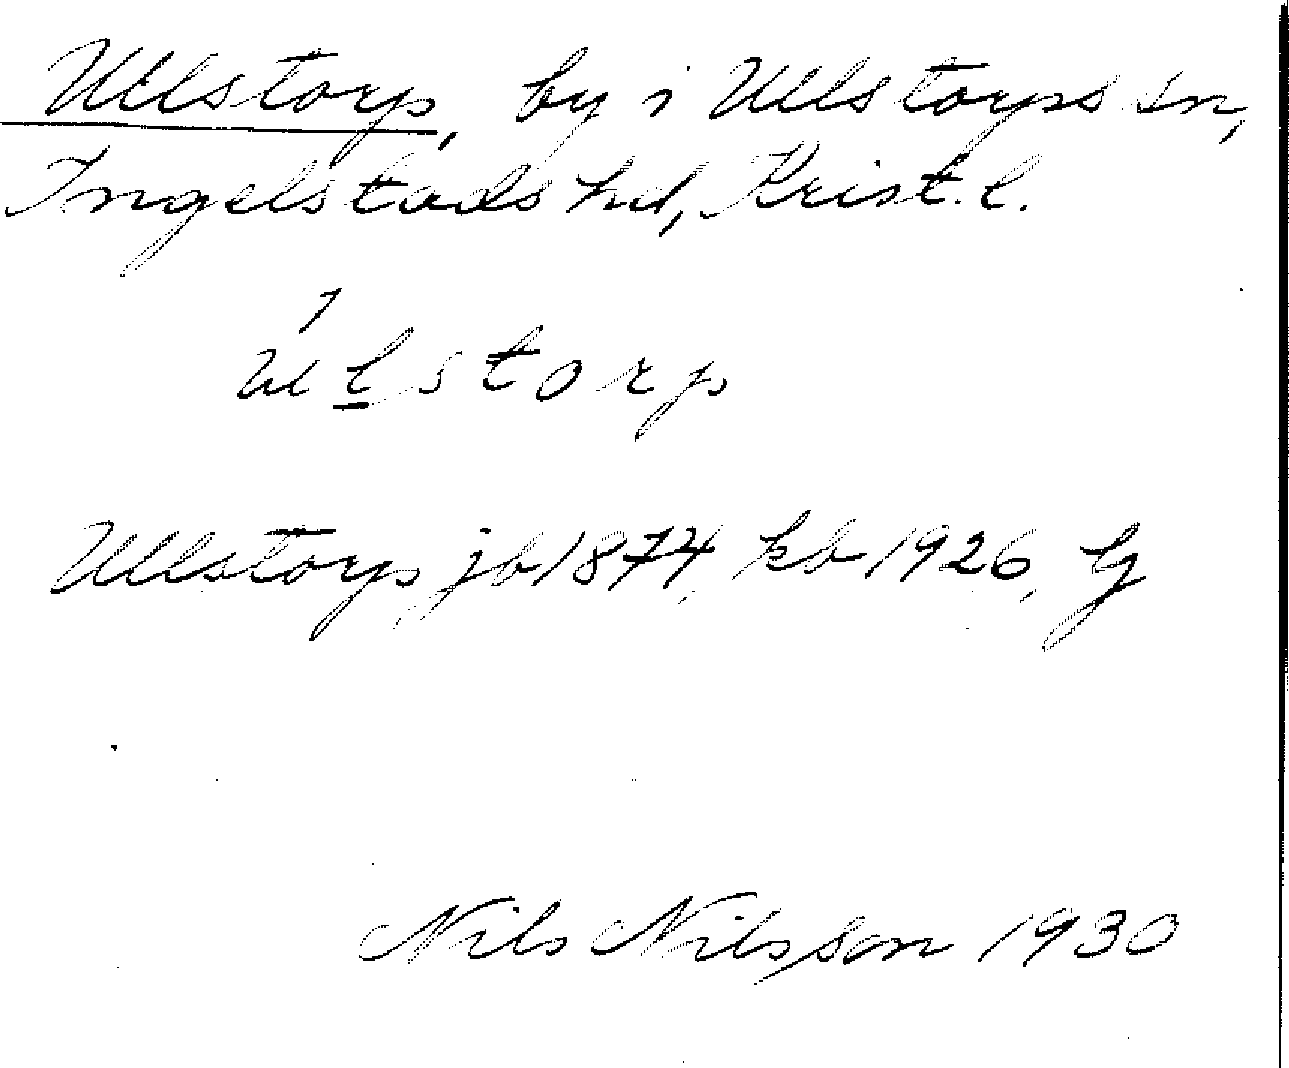 Ullstorp, by i Ullstorps sn,
Ingelstads hd, Krist. l.
úlstorp
Ullstorp jb 1874, kb 1926,
Nils Nilsson 1930